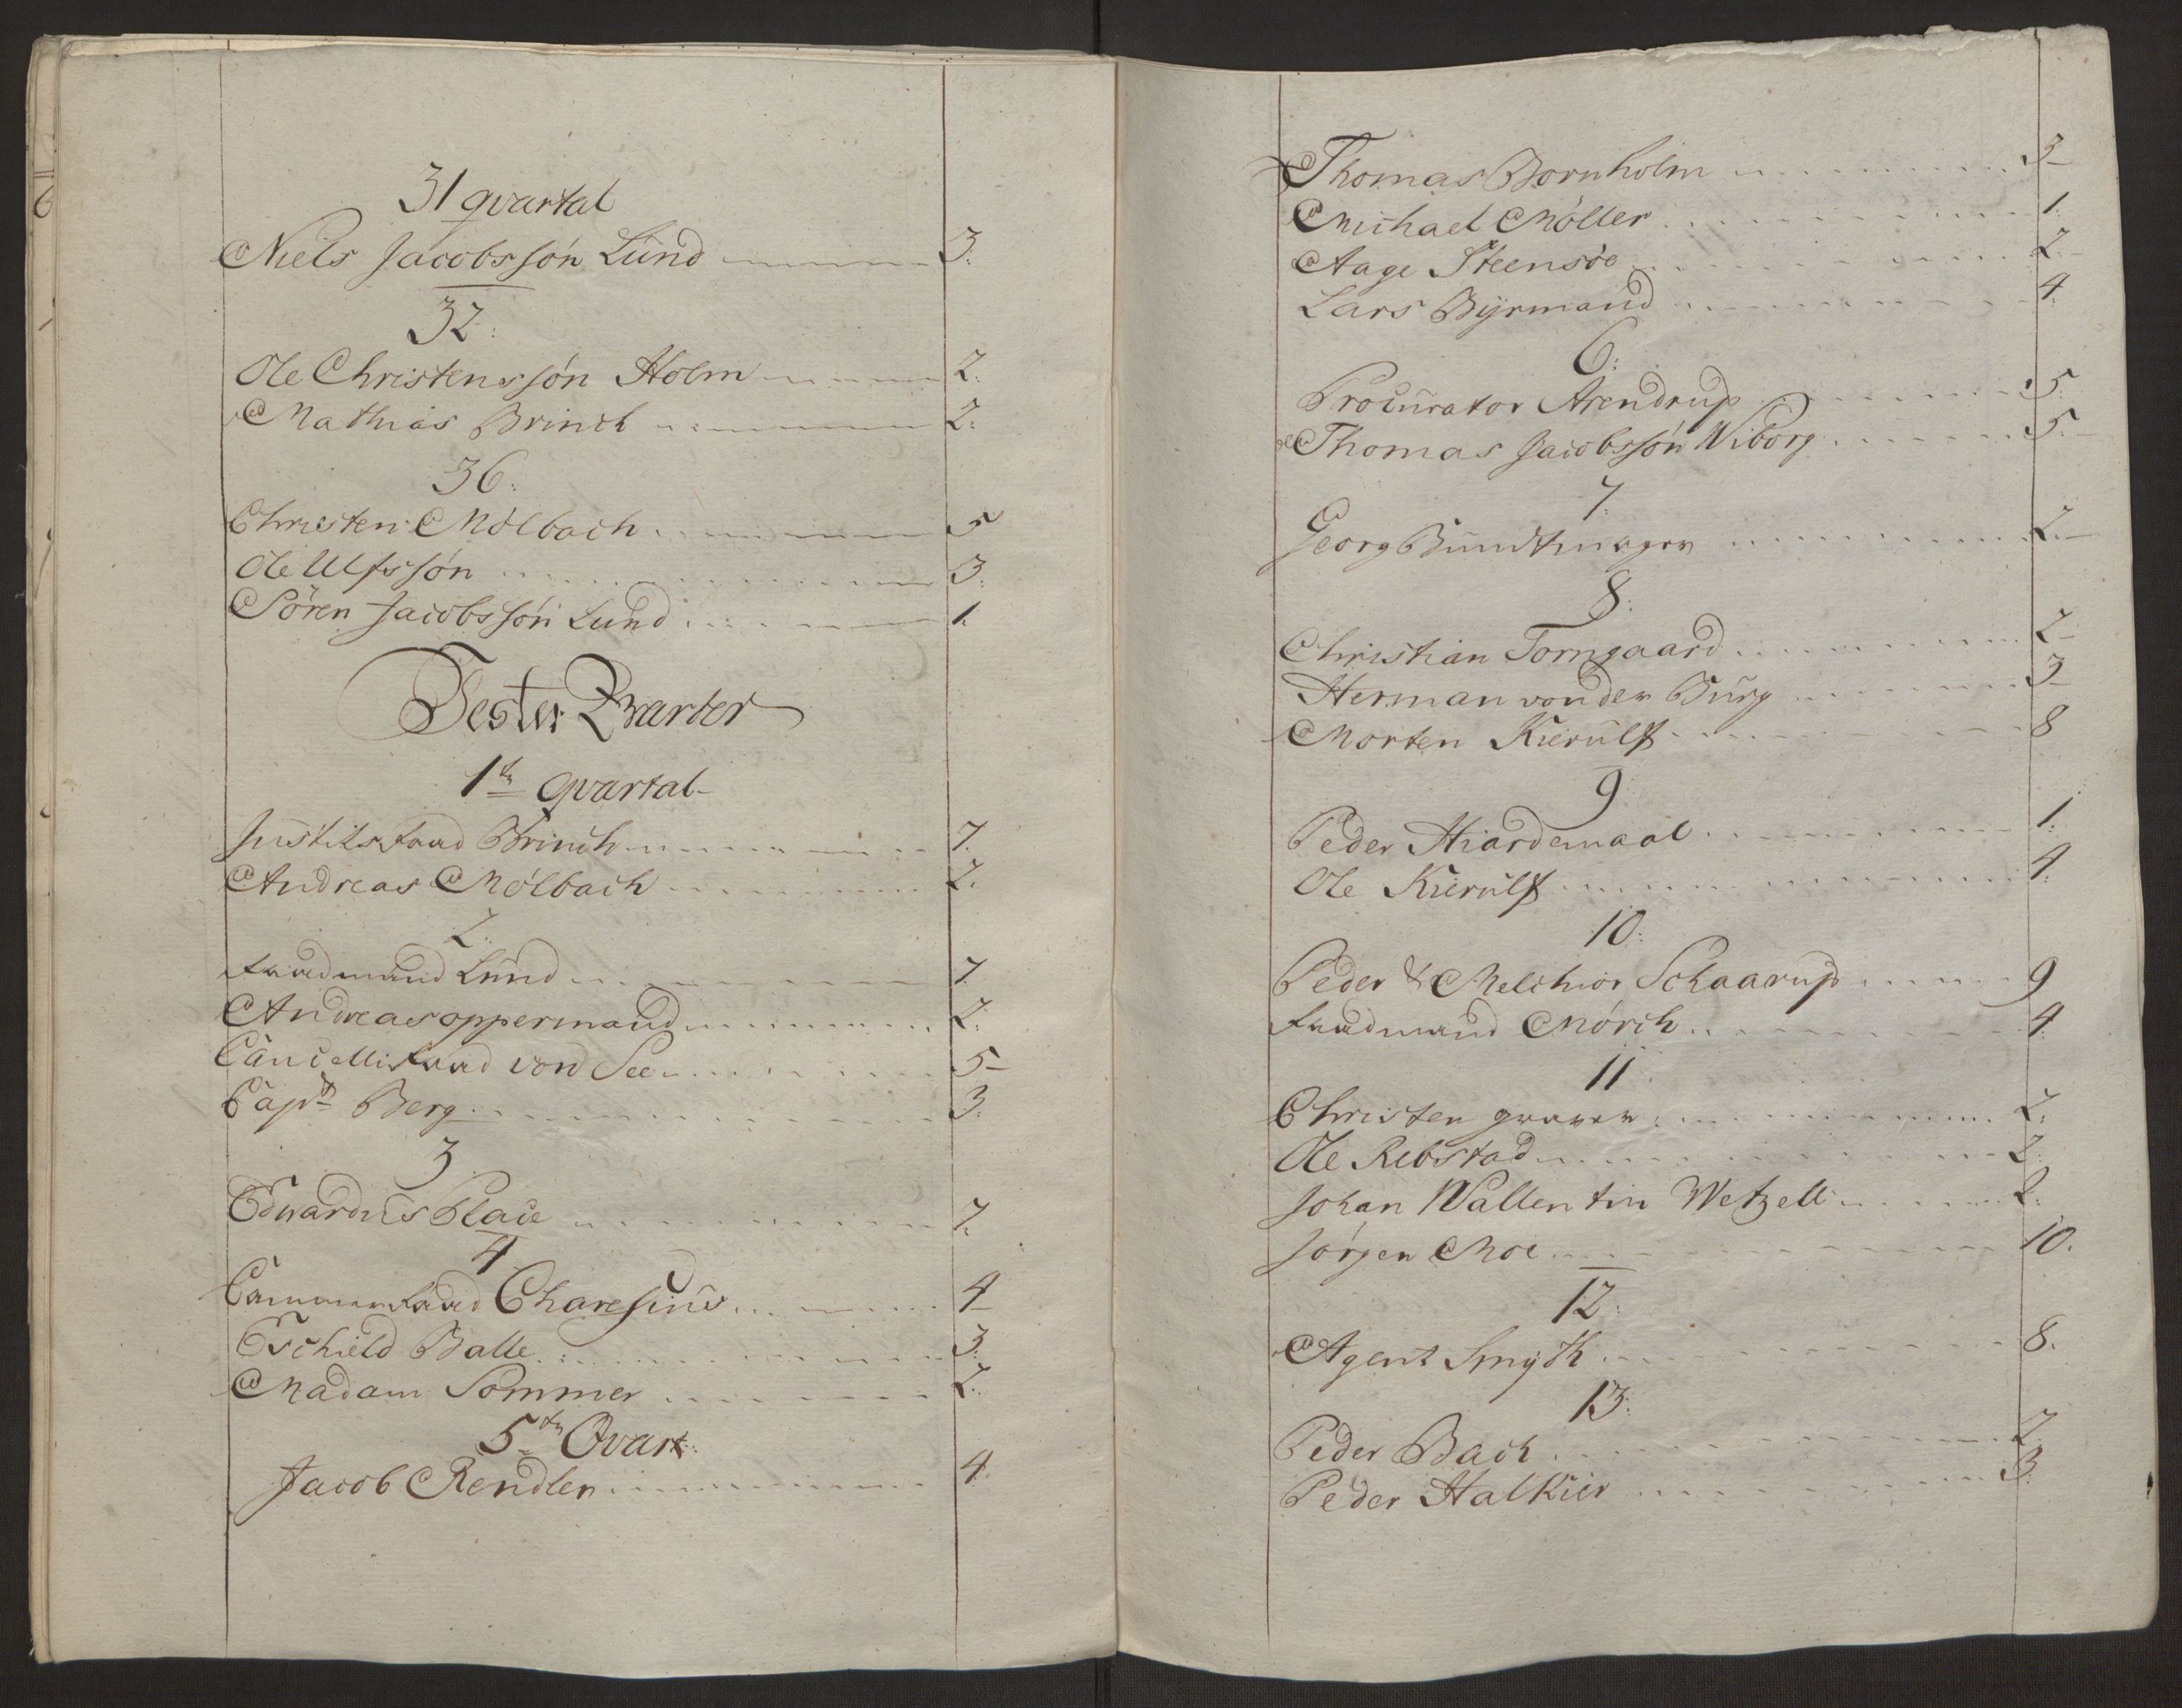 31 qvartal
Niels Jacobssön Lund 3:
32:
Ole Christenssön Holm 2:
Mathias Brinck 2:
36:
Christen Mölbach 5
Ole Ulfssön 3:
Sören Jacobssön Lund 1:
Vester Qvarter
1te qvartal
Justits raad Brinch 7.
Andreas Mölbach 2:
2:
Raadmand Lund 7
Andreas oppermand 2:
Cancelli raad von See 5
Capt Berg 3:
3
Edvardus Place 7:
4
Cammerraad Charesius 4
Eschield Balle 3:
Madam Sommer 2:
5te Qvart:
Jacob Rendler 4
Thomas Bornholm 3
Michael Möller 1:
Aage Steensöe 2.
Lars Byrmand 4:
6:
Procurator Arendrup 5:
Thomas Jacobssön Wiborg 5.
7.
Georg Bundtmager 2.
8:
Christian Torngaard 2
Herman von der Burg 3
Morten Kierulf 8
9
Peder Hiardemaal 1:
Ole Kierulf 4:
10:
Peder & Melchior Schaarup 9
Raadmand Mörch 4
11
Christen graver 2:
Ole Rebstad 2:
Johan Wallentin Wetzell 2:
Jörgen Moe 10.
12:
Agent Smyth 8.
13:
Peder Bach 2
Peder Halkier 3: